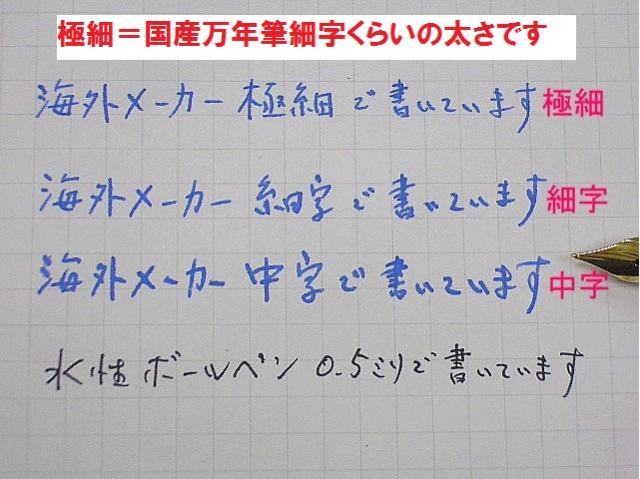 極細＝国産万年筆細字くらいの太さです
海外メーカー極細で書いています極細
海外メーカー細字で書いています細字
海外メーカー中字で書いています中字
水性ボールペン0.5ミリで書いています